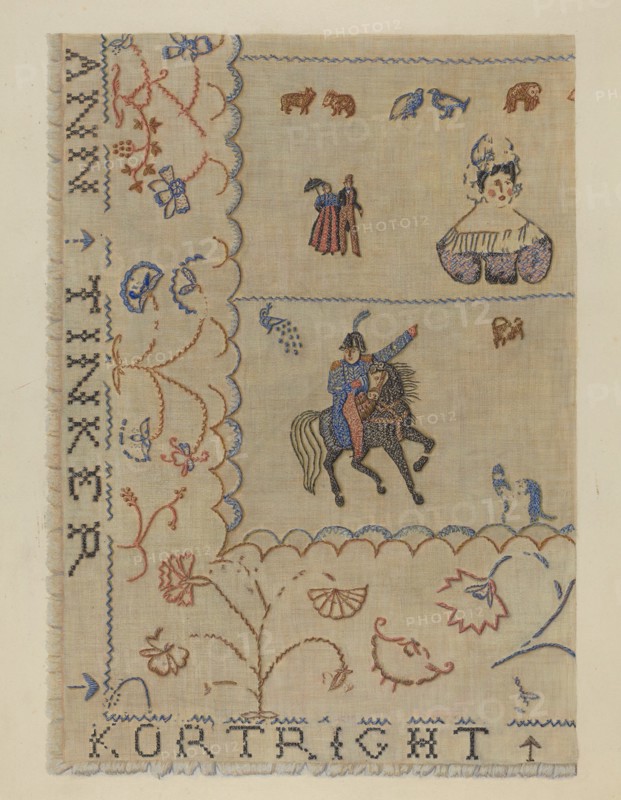 ANN TINKER
KORTRIGHT
PHOTO12